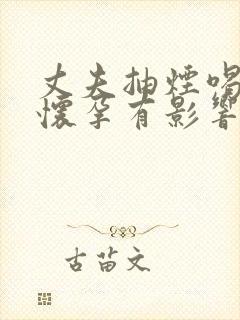 丈夫抽煙喝
懷孕有影響
古苗文